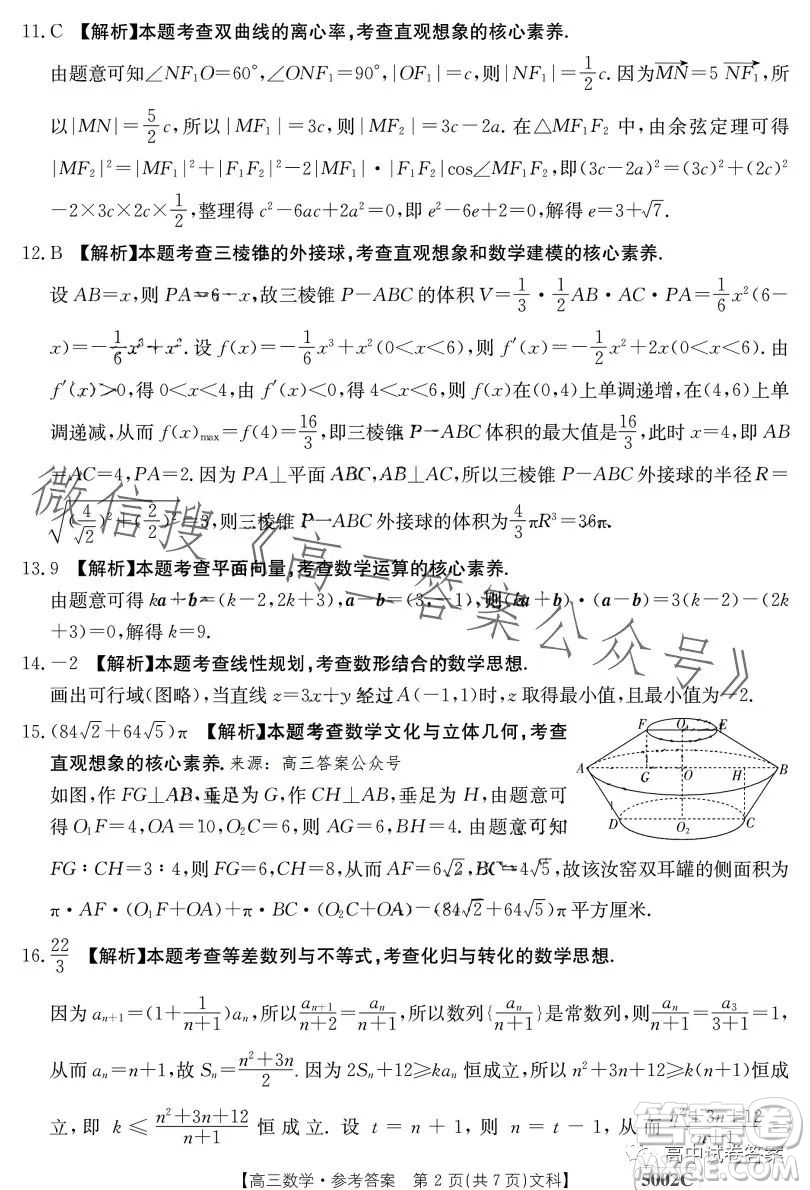 11.C 【解析】本题考查双曲线的离心率,考查直观想象的核心素养.
由题意可知∠NF₁O=60°,∠ONF₁=90°,|OF₁|=c,则|NF₁|=1/2 c. 因为MN=5 NF₁,所
以|MN|=5/2 c,所以|MF₁|=3c,则|MF₂|=3c-2a. 在△MF₁F₂ 中,由余弦定理可得
|MF₂|²=|MF₁|²+|F₁F₂|²-2|MF₁|·|F₁F₂|cos∠MF₁F₂,即(3c-2a)²=(3c)²+(2c)²
-2×3c×2c×1/2,整理得 c²-6ac+2a²=0,即 e²-6e+2=0,解得 e=3+√7.
12.B 【解析】本题考查三棱锥的外接球,考查直观想象和数学建模的核心素养.
设 AB=x,则 PA=6-x,故三棱锥 P-ABC 的体积 V=1/3·1/2 AB·AC·PA=1/6 x²(6-
x)=-1/6 x³+x². 设 f(x)=-1/6 x³+x²(0<x<6),则 f′(x)=-1/2 x²+2x(0<x<6). 由
f′(x)>0,得 0<x<4,由 f′(x)<0,得 4<x<6,则 f(x)在(0,4)上单调递增,在(4,6)上单
调递减,从而 f(x)max=f(4)=16/3,即三棱锥 P-ABC 体积的最大值是16/3,此时 x=4,即 AB
=AC=4,PA=2. 因为 PA⊥平面 ABC,AB⊥AC,所以三棱锥 P-ABC 外接球的半径 R=
√((4/√2)²+(2/2)²)=3,则三棱锥 P-ABC 外接球的体积为4/3 πR³=36π.
13.9 【解析】本题考查平面向量,考查数学运算的核心素养.
由题意可得 ka+b=(k-2,2k+3),a-b=(3,-1),则(ka+b)·(a-b)=3(k-2)-(2k
+3)=0,解得 k=9.
14.-2 【解析】本题考查线性规划,考查数形结合的数学思想.
画出可行域(图略),当直线 z=3x+y 经过 A(-1,1)时,z 取得最小值,且最小值为-2.
15.(84√2+64√5)π 【解析】本题考查数学文化与立体几何,考查
直观想象的核心素养. 来源:高三答案公众号
如图,作 FG⊥AB,垂足为 G,作 CH⊥AB,垂足为 H,由题意可
得 O₁F=4,OA=10,O₂C=6,则 AG=6,BH=4. 由题意可知
FG∶CH=3∶4,则 FG=6,CH=8,从而 AF=6√2,BC=4√5,故该汝窑双耳罐的侧面积为
π·AF·(O₁F+OA)+π·BC·(O₂C+OA)=(84√2+64√5)π平方厘米.
F O₁ E
A G O H B
D O₂ C
16.22/3 【解析】本题考查等差数列与不等式,考查化归与转化的数学思想.
因为 aₙ₊₁=(1+1/(n+1))aₙ,所以aₙ₊₁/(n+2)=aₙ/(n+1),所以数列{aₙ/(n+1)}是常数列,则aₙ/(n+1)=a₃/(3+1)=1,
从而 aₙ=n+1,故 Sₙ=(n²+3n)/2. 因为 2Sₙ+12≥kaₙ 恒成立,所以 n²+3n+12≥k(n+1)恒成
立,即 k≤(n²+3n+12)/(n+1)恒成立. 设 t=n+1,则 n=t-1,从而(n²+3n+12)/(n+1)
【高三数学·参考答案 第 2 页(共 7 页)文科】
5002C
微信搜《高三答案公众号》
高中试卷答案